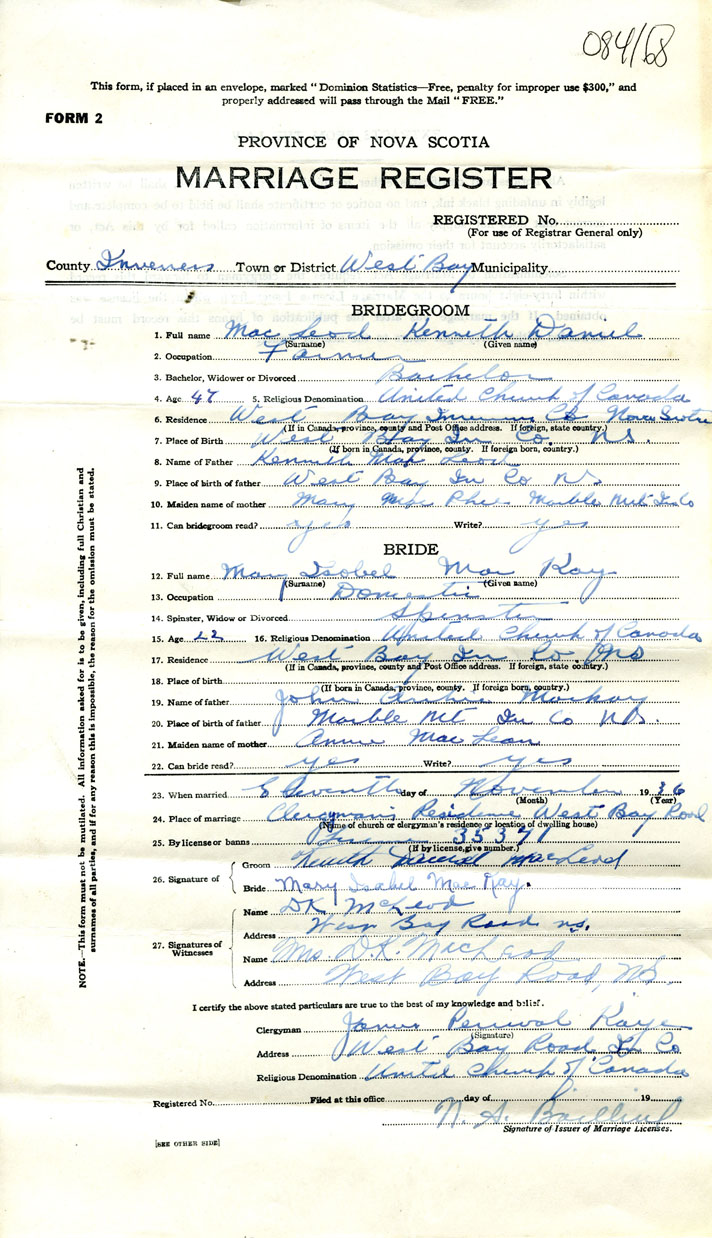 084/68
This form, if placed in an envelope, marked "Dominion Statistics—Free, penalty for improper use $300," and
properly addressed will pass through the Mail "FREE."
FORM 2
PROVINCE OF NOVA SCOTIA
MARRIAGE REGISTER
REGISTERED No.
(For use of Registrar General only)
County Inverness Town or District West Bay Municipality
BRIDEGROOM
1. Full name Mac Leod Kenneth Daniel
(Surname) (Given name)
2. Occupation Farmer
3. Bachelor, Widower or Divorced Bachelor
4. Age 47 5. Religious Denomination United Church of Canada
6. Residence West Bay Inverness Co Nova Scotia
(If in Canada, province, county and Post Office address. If foreign, state country.)
7. Place of Birth West Bay In Co. N.S.
(If born in Canada, province, county. If foreign born, country.)
8. Name of Father Kenneth Mac Leod
9. Place of birth of father West Bay In Co NS
10. Maiden name of mother Mary Mac Phee Marble Mt In Co
11. Can bridegroom read? yes Write? yes
BRIDE
12. Full name Mary Isobel Mac Kay
(Surname) (Given name)
13. Occupation Domestic
14. Spinster, Widow or Divorced Spinster
15. Age 22 16. Religious Denomination United Church of Canada
17. Residence West Bay In Co NS
(If in Canada, province, county and Post Office address. If foreign, state country.)
18. Place of birth
(If born in Canada, province, county. If foreign born, country.)
19. Name of father John Mackay
20. Place of birth of father Marble Mt In Co N.S.
21. Maiden name of mother Annie Mac Lean
22. Can bride read? yes Write? yes
23. When married Eleventh day of November 1936
(Month) (Year)
24. Place of marriage Clergyman's Residence West Bay Road
(Name of church or clergyman's residence or location of dwelling house)
25. By license or banns 35371
(If by license, give number.)
26. Signature of
Groom Kenneth Daniel MacLeod
Bride Mary Isabel Mac Kay.
27. Signatures of Witnesses
Name D K McLeod
Address West Bay Road ns.
Name Mrs D.K. MacLeod
Address West Bay Road, N.S.
I certify the above stated particulars are true to the best of my knowledge and belief.
Clergyman James Percival Kaye
(Signature)
Address West Bay Road In Co
Religious Denomination United Church of Canada
Registered No. Filed at this office day of 19
N. A.
Signature of Issuer of Marriage Licenses.
[SEE OTHER SIDE]
NOTE.—This form must not be mutilated. All information asked for is to be given, including full Christian and
surnames of all parties, and if for any reason this is impossible, the reason for the omission must be stated.